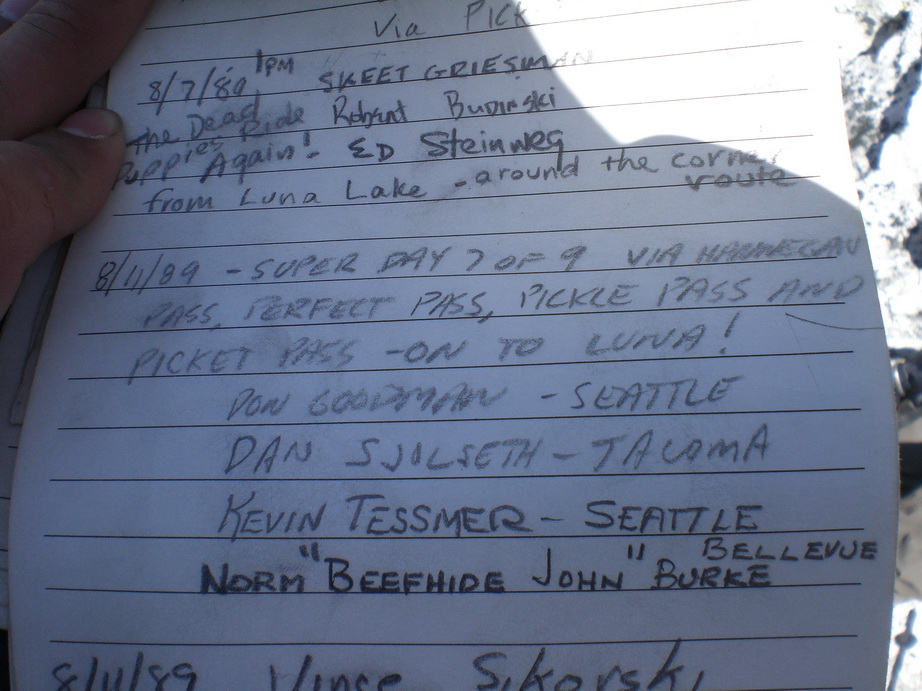 Via PICK
8/7/89 1PM SKEET GRIESMAN
The Dead Robert Budinski
Puppies Ride
Again! ED Steinweg
from Luna Lake - around the corner
route
8/11/89 - SUPER DAY 7 OF 9 VIA HANNEGAN
PASS, PERFECT PASS, PICKLE PASS AND
PICKET PASS - ON TO LUNA!
DON GOODMAN - SEATTLE
DAN SJOLSETH - TACOMA
KEVIN TESSMER - SEATTLE
BELLEVUE
NORM "BEEFHIDE JOHN" BURKE
8/11/89 Vince Sikorski